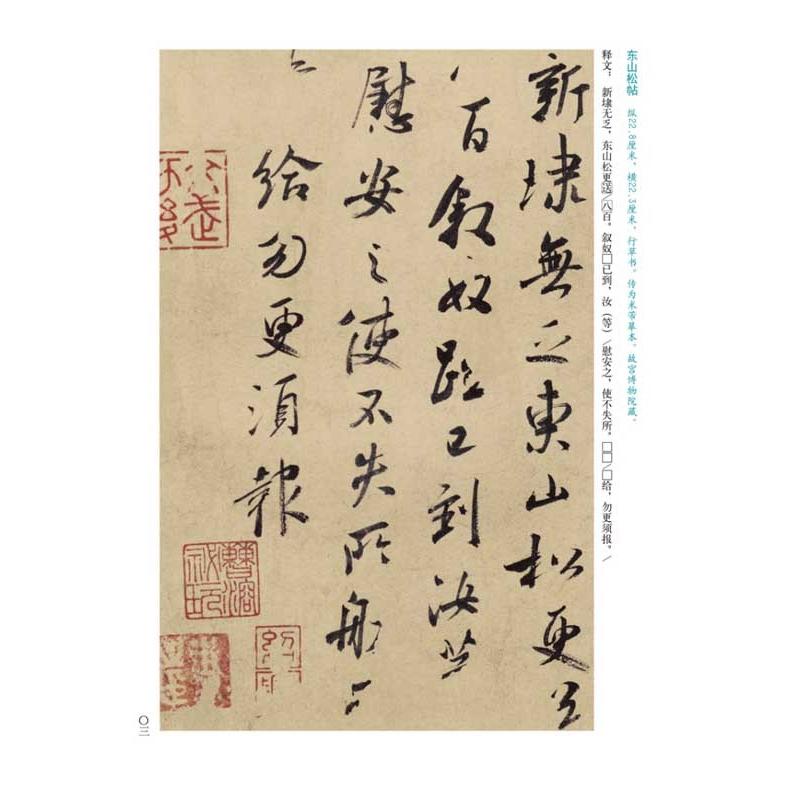 东山松帖 纵22.8厘米，横22.3厘米，行草书。传为米芾摹本。故宫博物院藏。
释文：新埭无乏，东山松更送/八百，叙奴□已到，汝（等）/慰安之，使不失所。□□/□给，勿更须报。/
新埭無乏東山松更
百叙奴 已到汝
慰安之使不失所
给勿更須報
〇三一